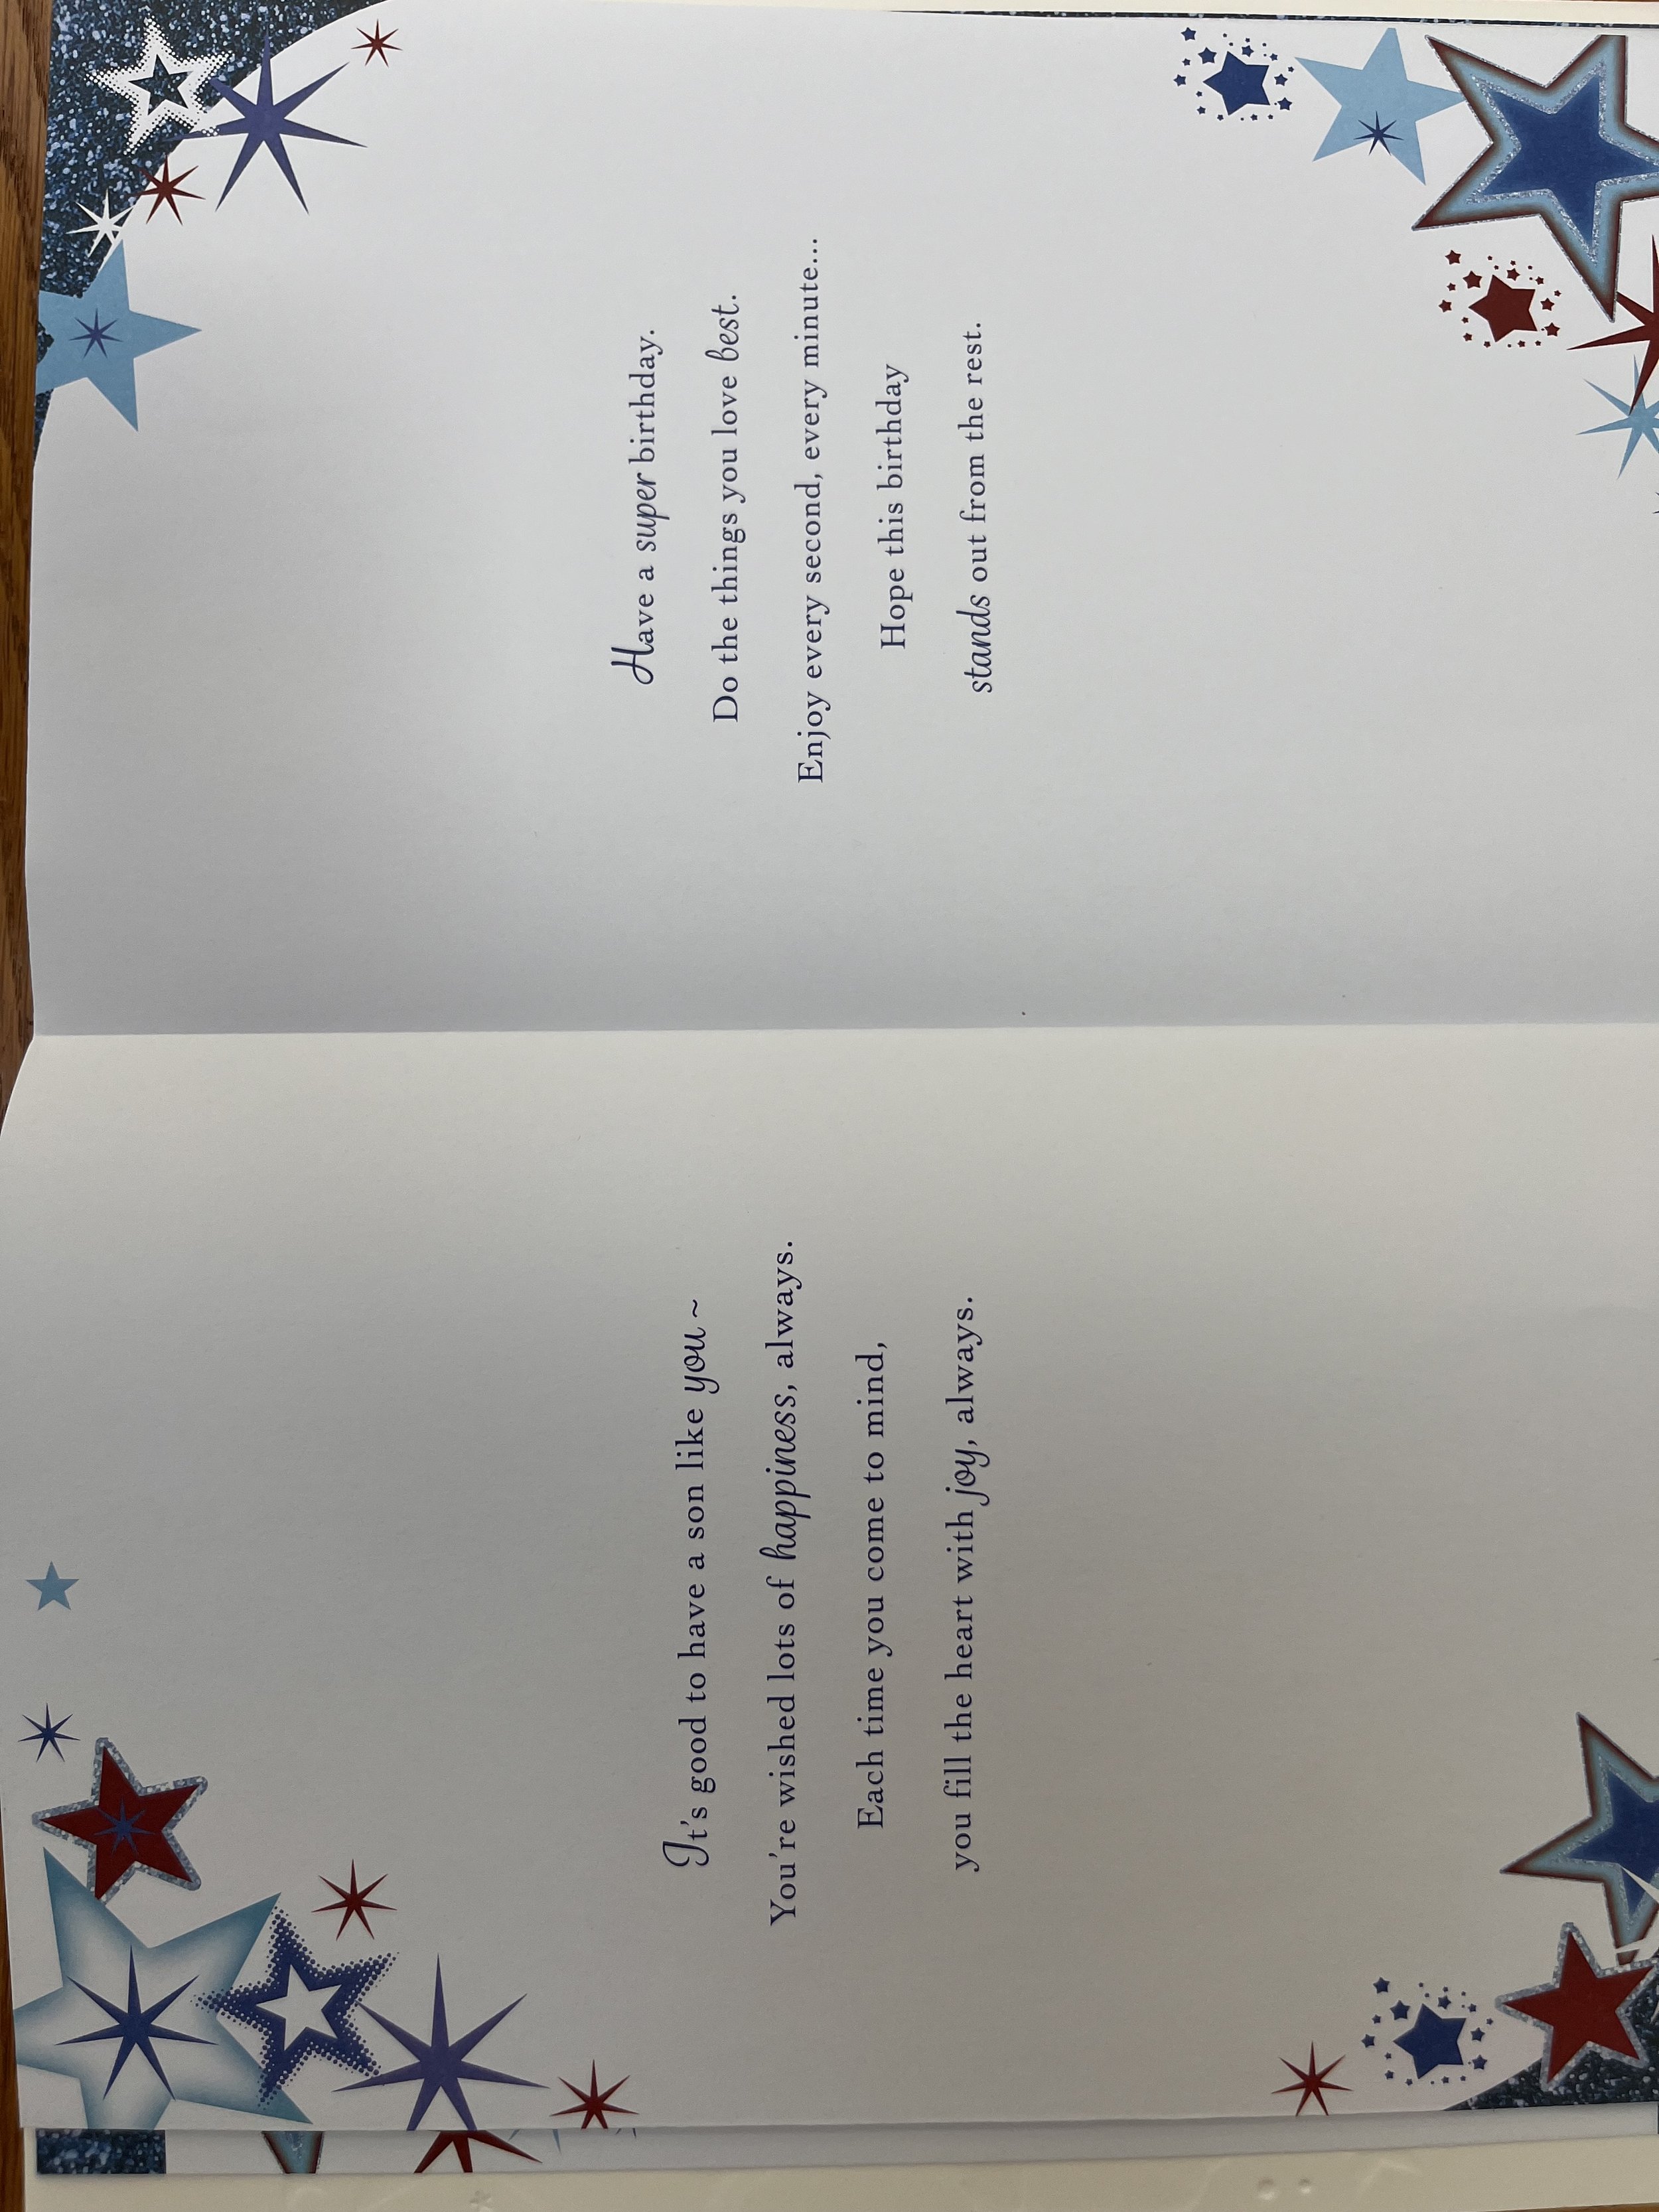 It's good to have a son like you ~
You're wished lots of happiness, always.
Each time you come to mind,
you fill the heart with joy, always.
Have a super birthday.
Do the things you love best.
Enjoy every second, every minute...
Hope this birthday
stands out from the rest.